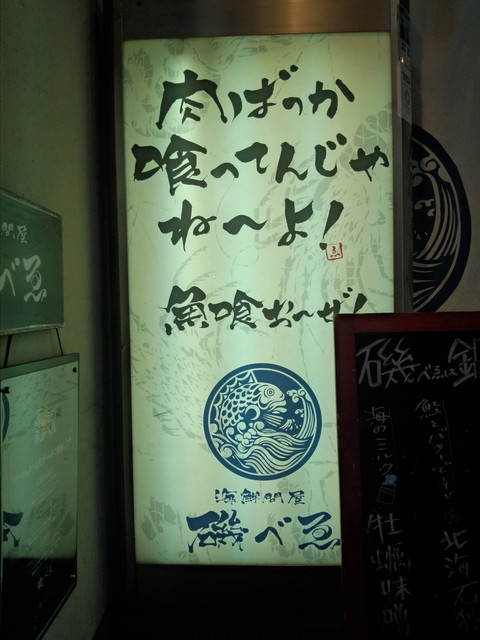 肉ばっか
喰ってんじゃ
ね〜よ！
魚喰お〜ぜ！
海鮮問屋
磯べゑ
問屋
べゑ
磯べゑは
海のミルク
牡蠣味噌
北海